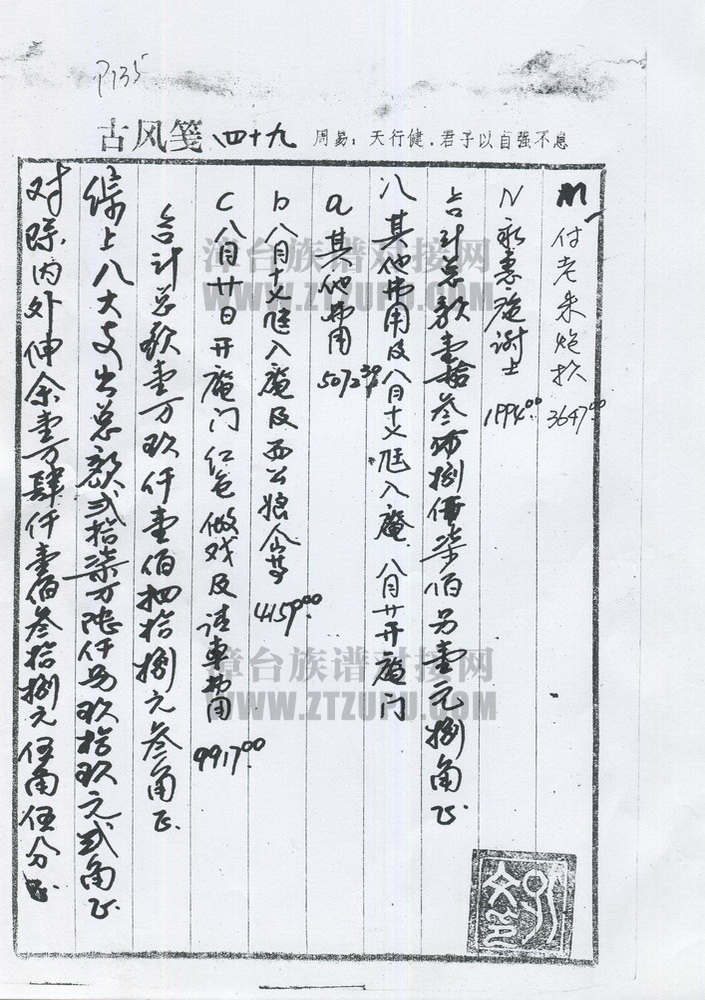 P135
古风笺 四十九 周易：天行健，君子以自强不息
M 付老朱炮款 3647.00
N 永惠施谢土 1894.00
合计总款壹拾叁万捌仟柒佰另壹元捌角正.
八 其他费用及八月十七旺入庵 八月廿开庵门
a 其他费用 5072.30
b 八月十七旺入庵及西公娘 4159.00
C 八月廿日开庵门红包做戏及请车费用 9917.00
合计总款壹万玖仟壹佰四拾捌元叁角正.
综上八大支出总额贰拾柒万陆仟另玖拾玖元贰角正.
对除内外伸余壹万肆仟壹佰叁拾捌元伍角伍分正.
漳台族谱对接网
WWW.ZTZUPU.COM
漳台族谱对接网
WWW.ZTZUPU.COM